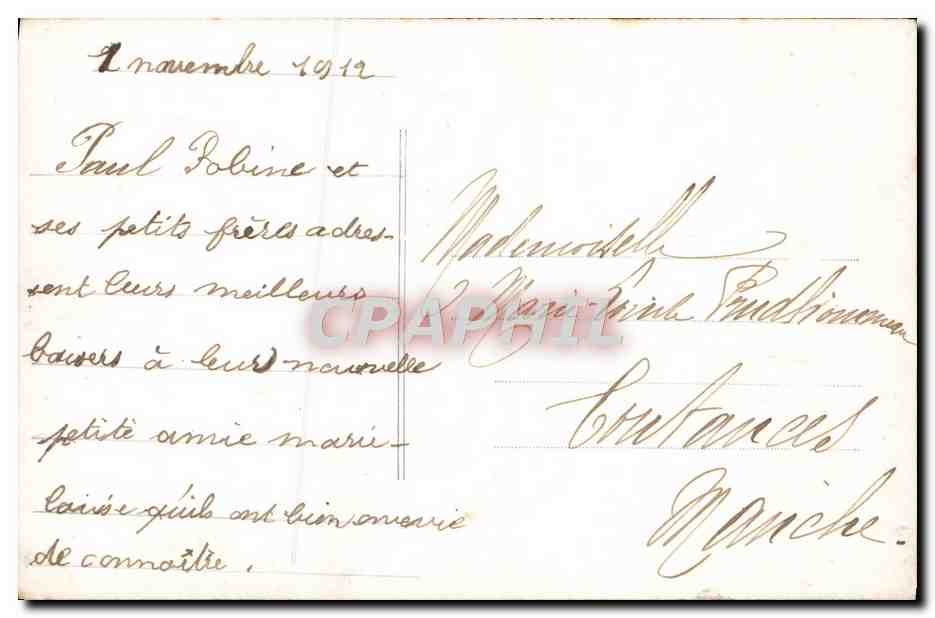 1 novembre 1912
Paul Bobine et
ses petits frères adres-
sent leurs meilleurs
baisers à leur nouvelle
petite amie marie-
louise qu'ils ont bien envie
de connaître.
Mademoiselle
Marie-Louise Prudhommeau
Coutances
Manche.
CPAPHIL